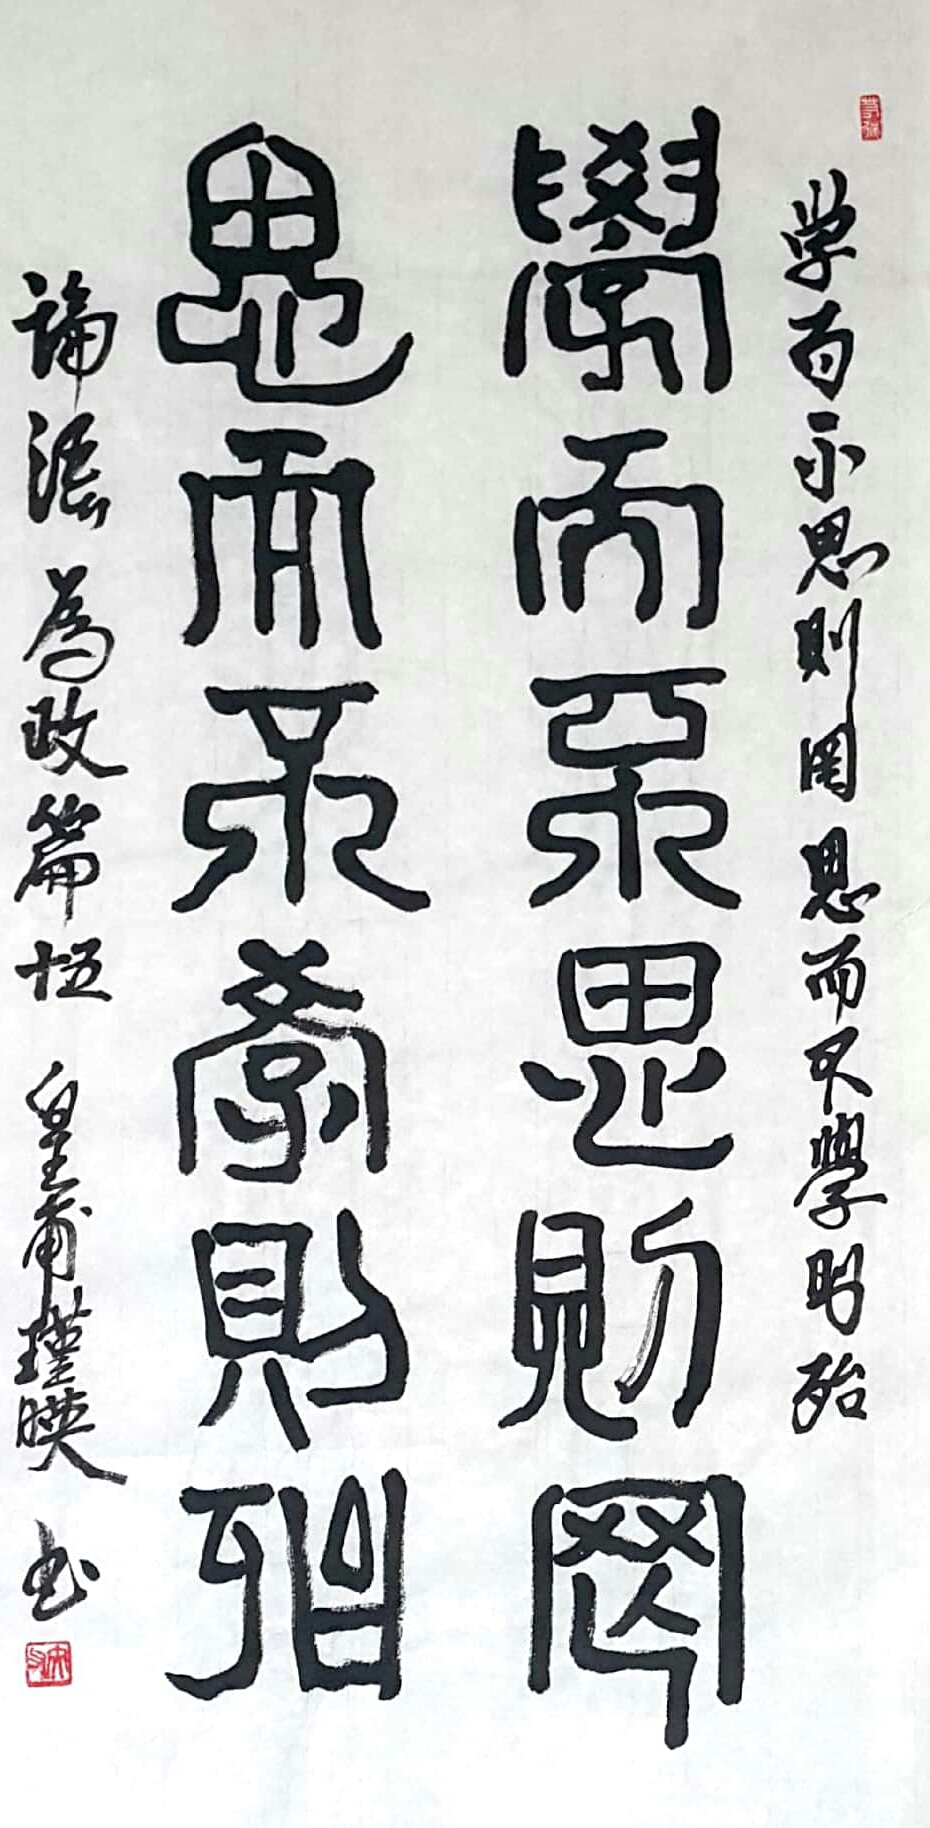 学而不思则罔思而不學则殆
學而不思則罔
思而不學則殆
論语為政篇十五 皇甫瑾暎书